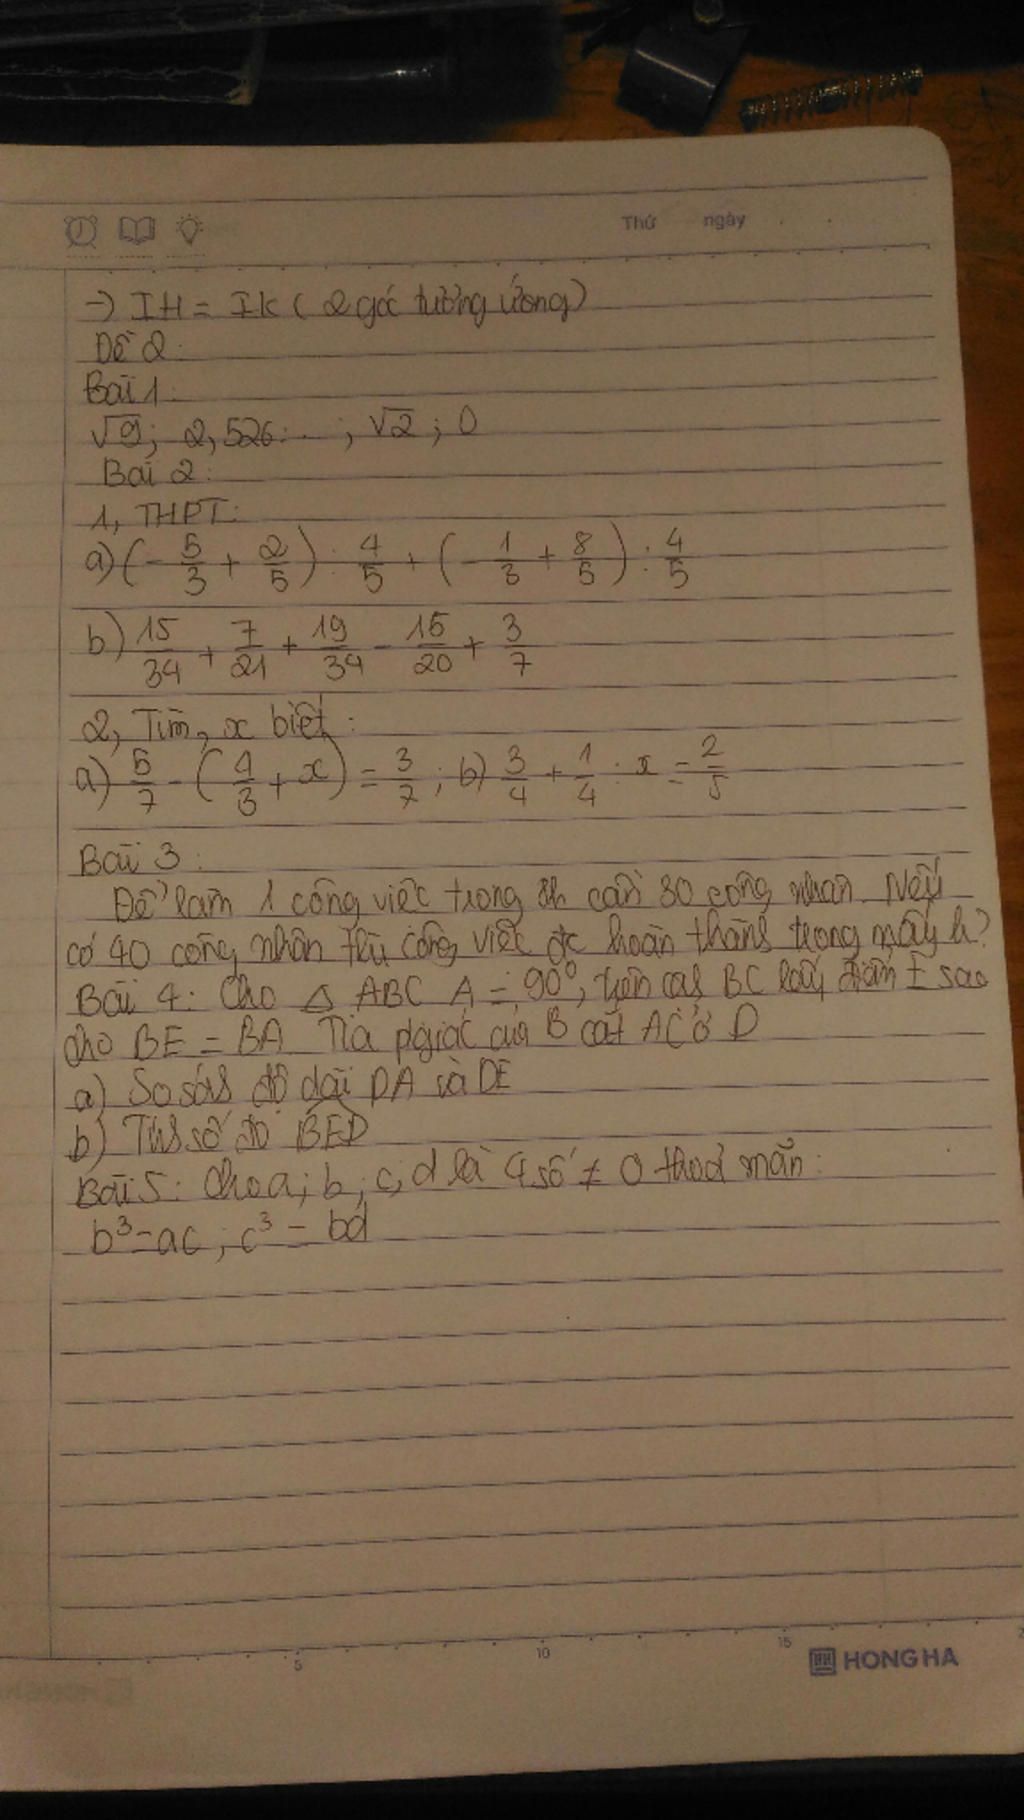 Thứ ngày
→ IH = IK ( 2 góc tương ứng)
Đề 2:
Bài 1:
√9; 2,526...; √2; 0
Bài 2:
1, THPT:
a) (-5/3 + 2/5) : 4/5 + (-1/3 + 8/5) : 4/5
b) 15/34 + 7/21 + 19/34 - 15/20 + 3/7
2, Tìm, x biết:
a) 5/7 - (4/3 + x) = 3/7; b) 3/4 + 1/4 : x = 2/5
Bài 3:
Để làm 1 công việc trong cần 30 công nhân. Nếu
có 40 công nhân thì công việc đc hoàn thành trong mấy h?
Bài 4: Cho △ ABC A = 90°, trên cạnh BC lấy điểm E sao
cho BE = BA Tia pgiác của B cắt AC ở D
a) So sánh độ dài DA và DE
b) Tính số đo BED
Bài 5: Cho a; b; c; d là 4 số ≠ 0 thoả mãn:
b³=ac; c³ = bd
5 10 15
HONG HA